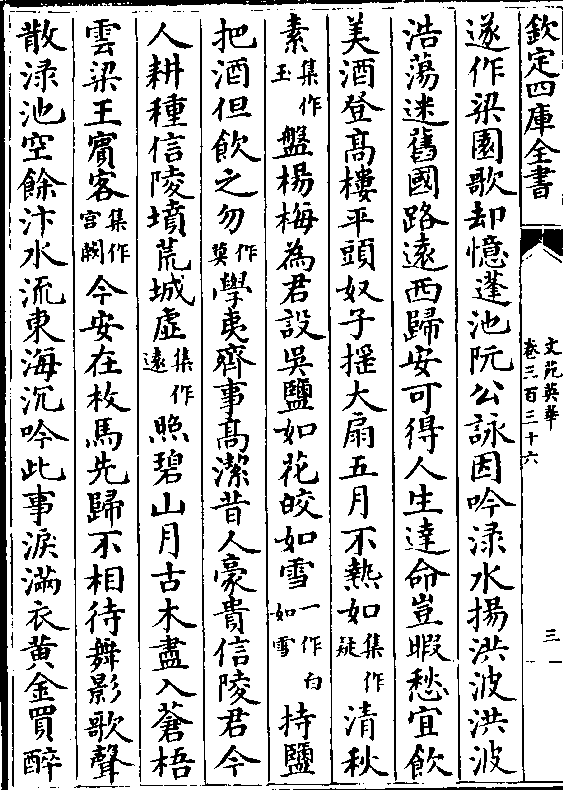 欽定四庫全書
文苑英華
卷三百三十六
三
遂作梁園歌却憶蓬池阮公詠因吟渌水揚洪波洪波
浩蕩迷舊國路遠西歸安可得人生達命豈暇愁宜飲
美酒登高樓平頭奴子揺大扇五月不熱如集作疑清秋
素集作玉盤楊梅為君設吳鹽如花皎如雪一作白如雪持鹽
把酒但飲之勿作莫學夷齊事高潔昔人豪貴信陵君今
人耕種信陵墳荒城虛集作遠照碧山月古木盡入蒼梧
雲梁王賓客集作宫闕今安在枚馬先歸不相待舞影歌聲
散渌池空餘汴水流東海沉吟此事淚滿衣黄金買醉